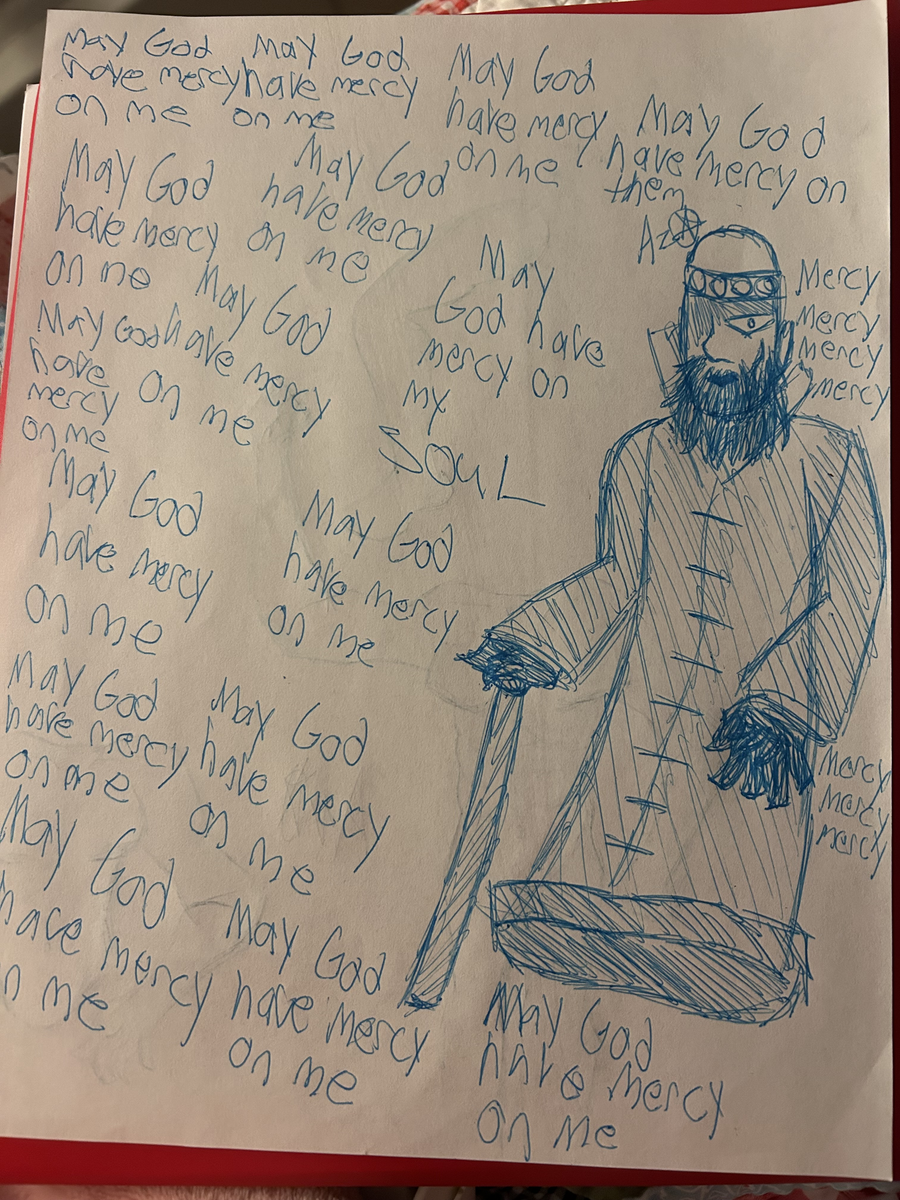 May God
have mercy
on me
May God
have mercy
on me
May God
have mercy
on me
May God
have mercy on
them
May God
have mercy
on me
May God
have mercy
on me
May God
have mercy
on me
May God
have
mercy
on me
May
God have
mercy on
my
SOUL
Mercy
Mercy
Mercy
mercy
May God
have mercy
on me
May God
have mercy
on me
May God
have mercy
on me
May God
have mercy
on me
Mercy
Mercy
Mercy
May God
have mercy
on me
May God
have mercy
on me
May God
have mercy
on me